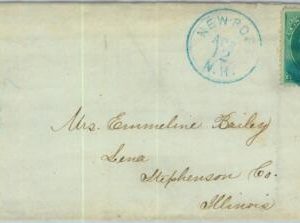 NEWPORT
12
N.H.
Mrs. Emmeline Bailey
Lena
Stephenson Co.
Illinois